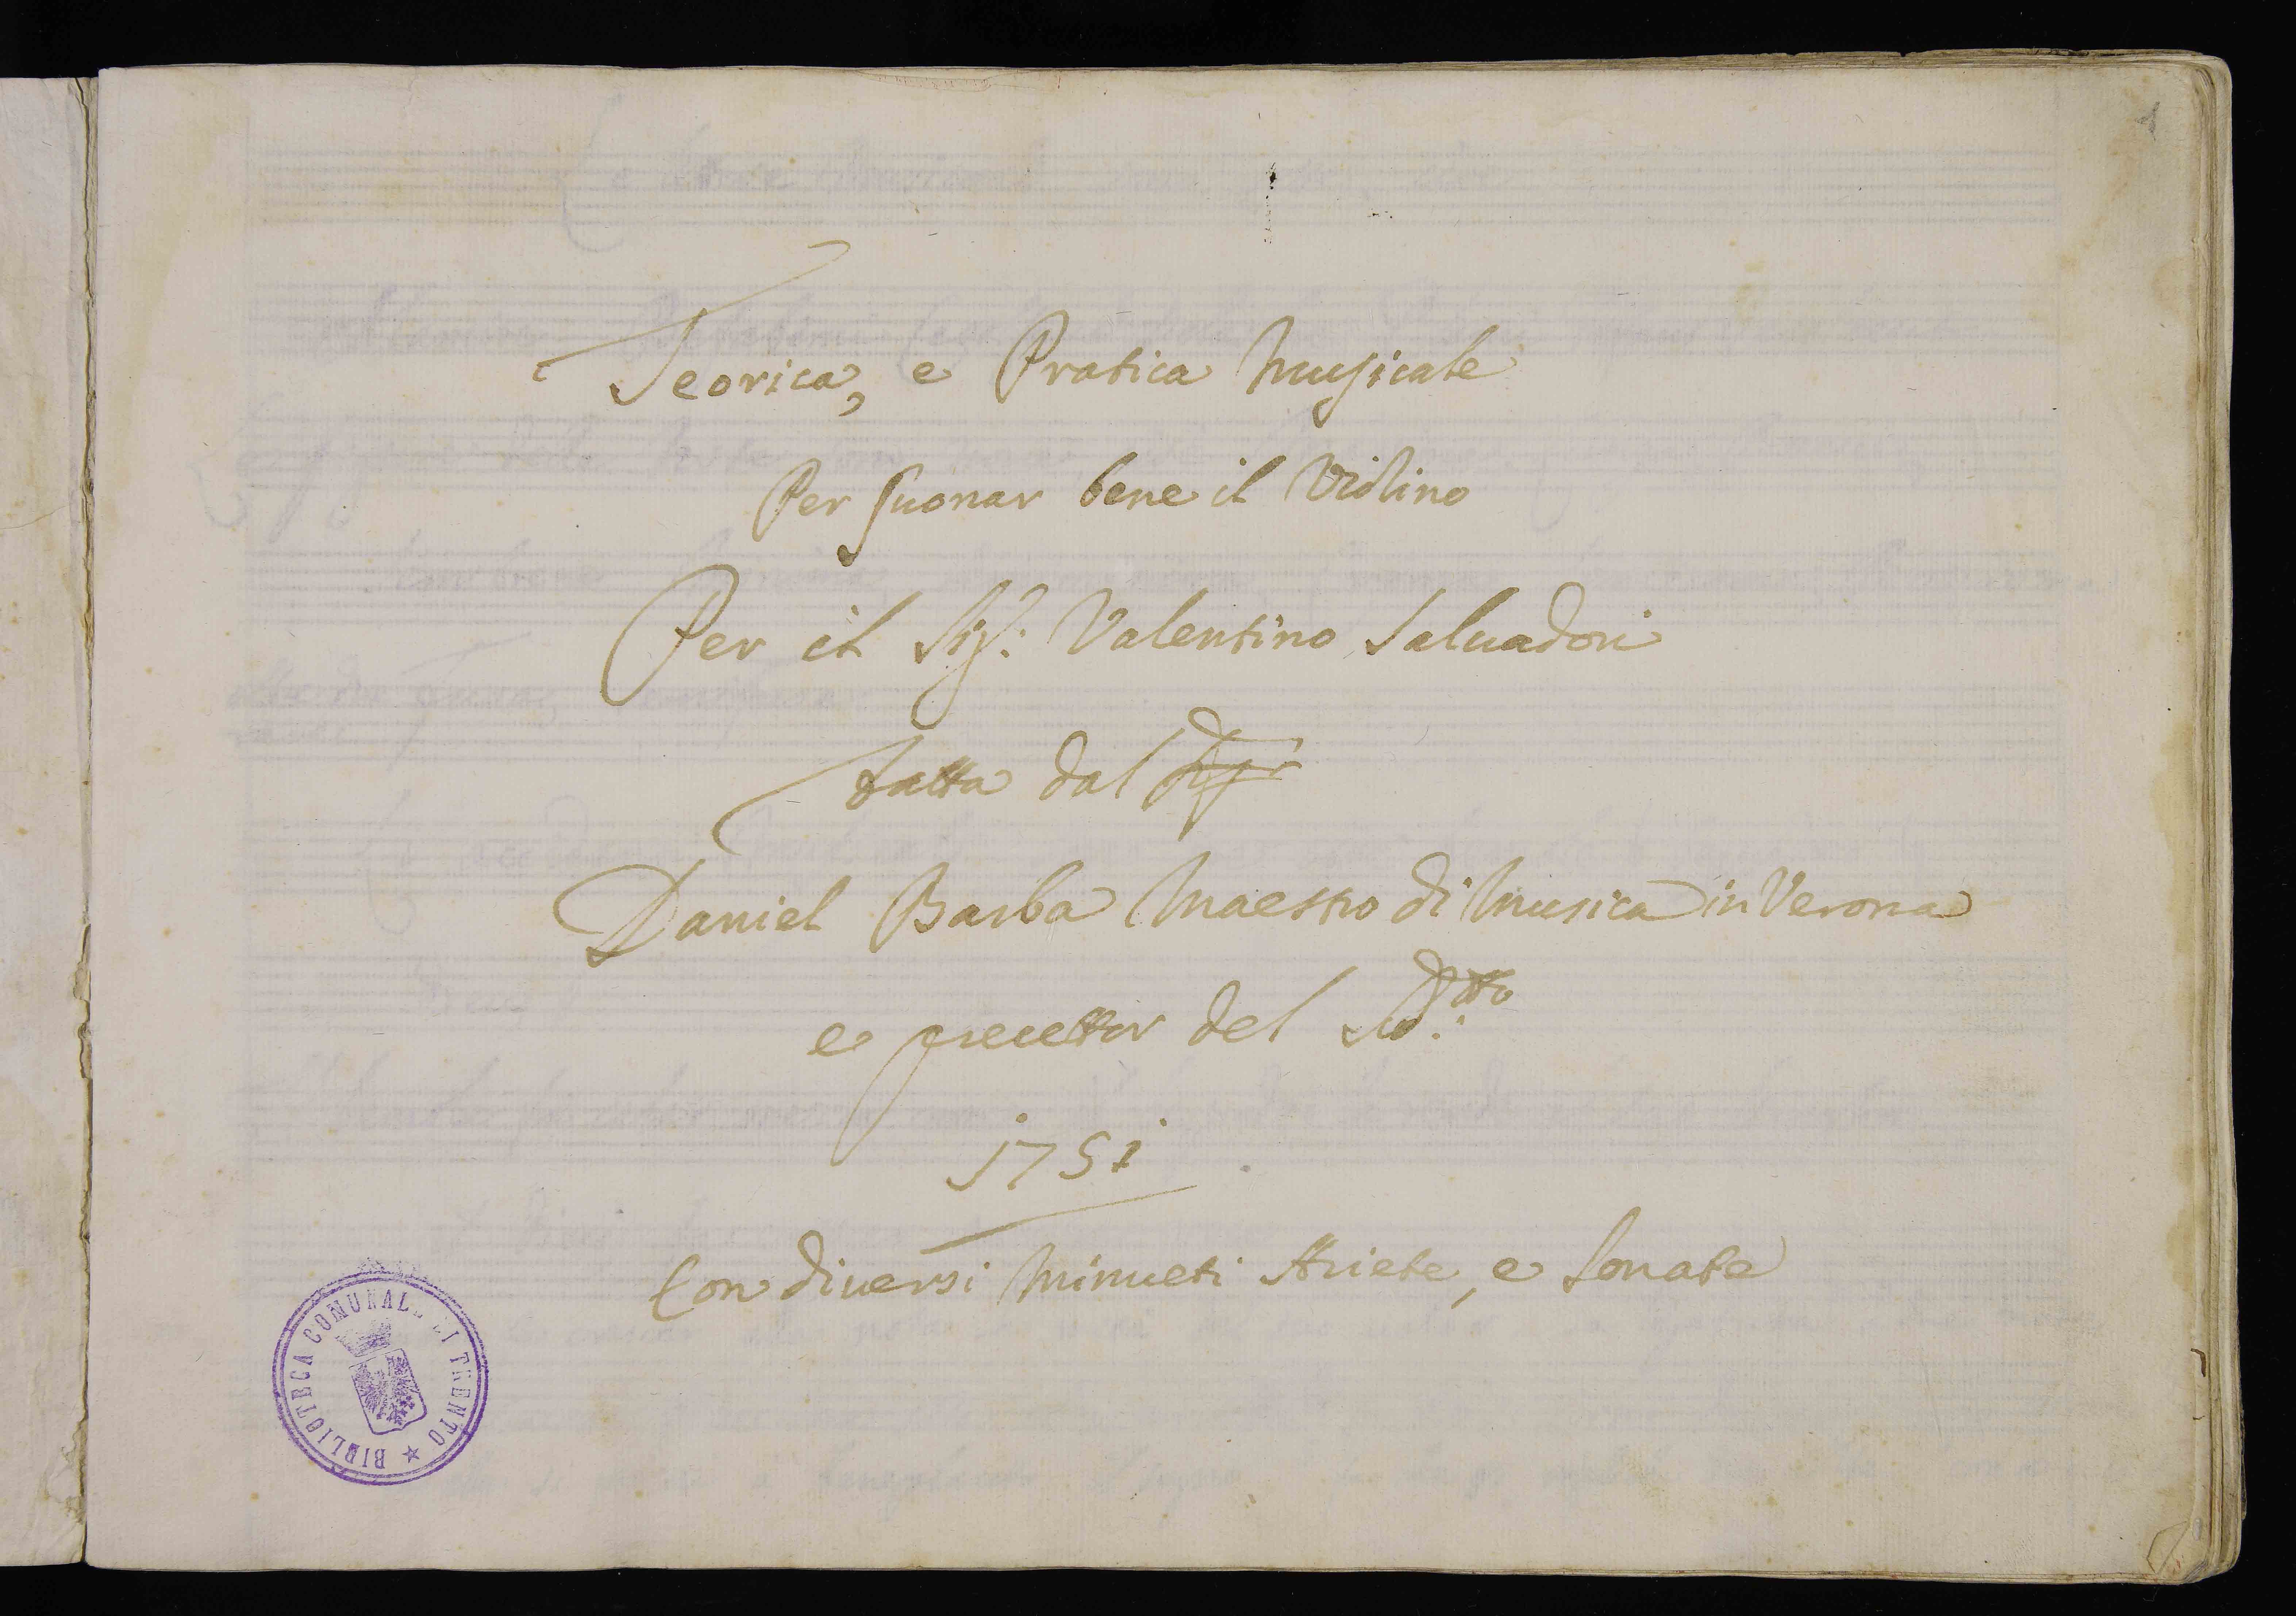 1
Teorica, e Pratica Musicale
Per suonar bene il Violino
Per il Sig: Valentino Saluadori
Fatta dal
Daniel Barba Maestro di Musica in Verona
e precettor del Sud:tto
1751
Con diuersi Minueti Ariete, e Sonate
BIBLIOTECA COMUNALE DI TRENTO